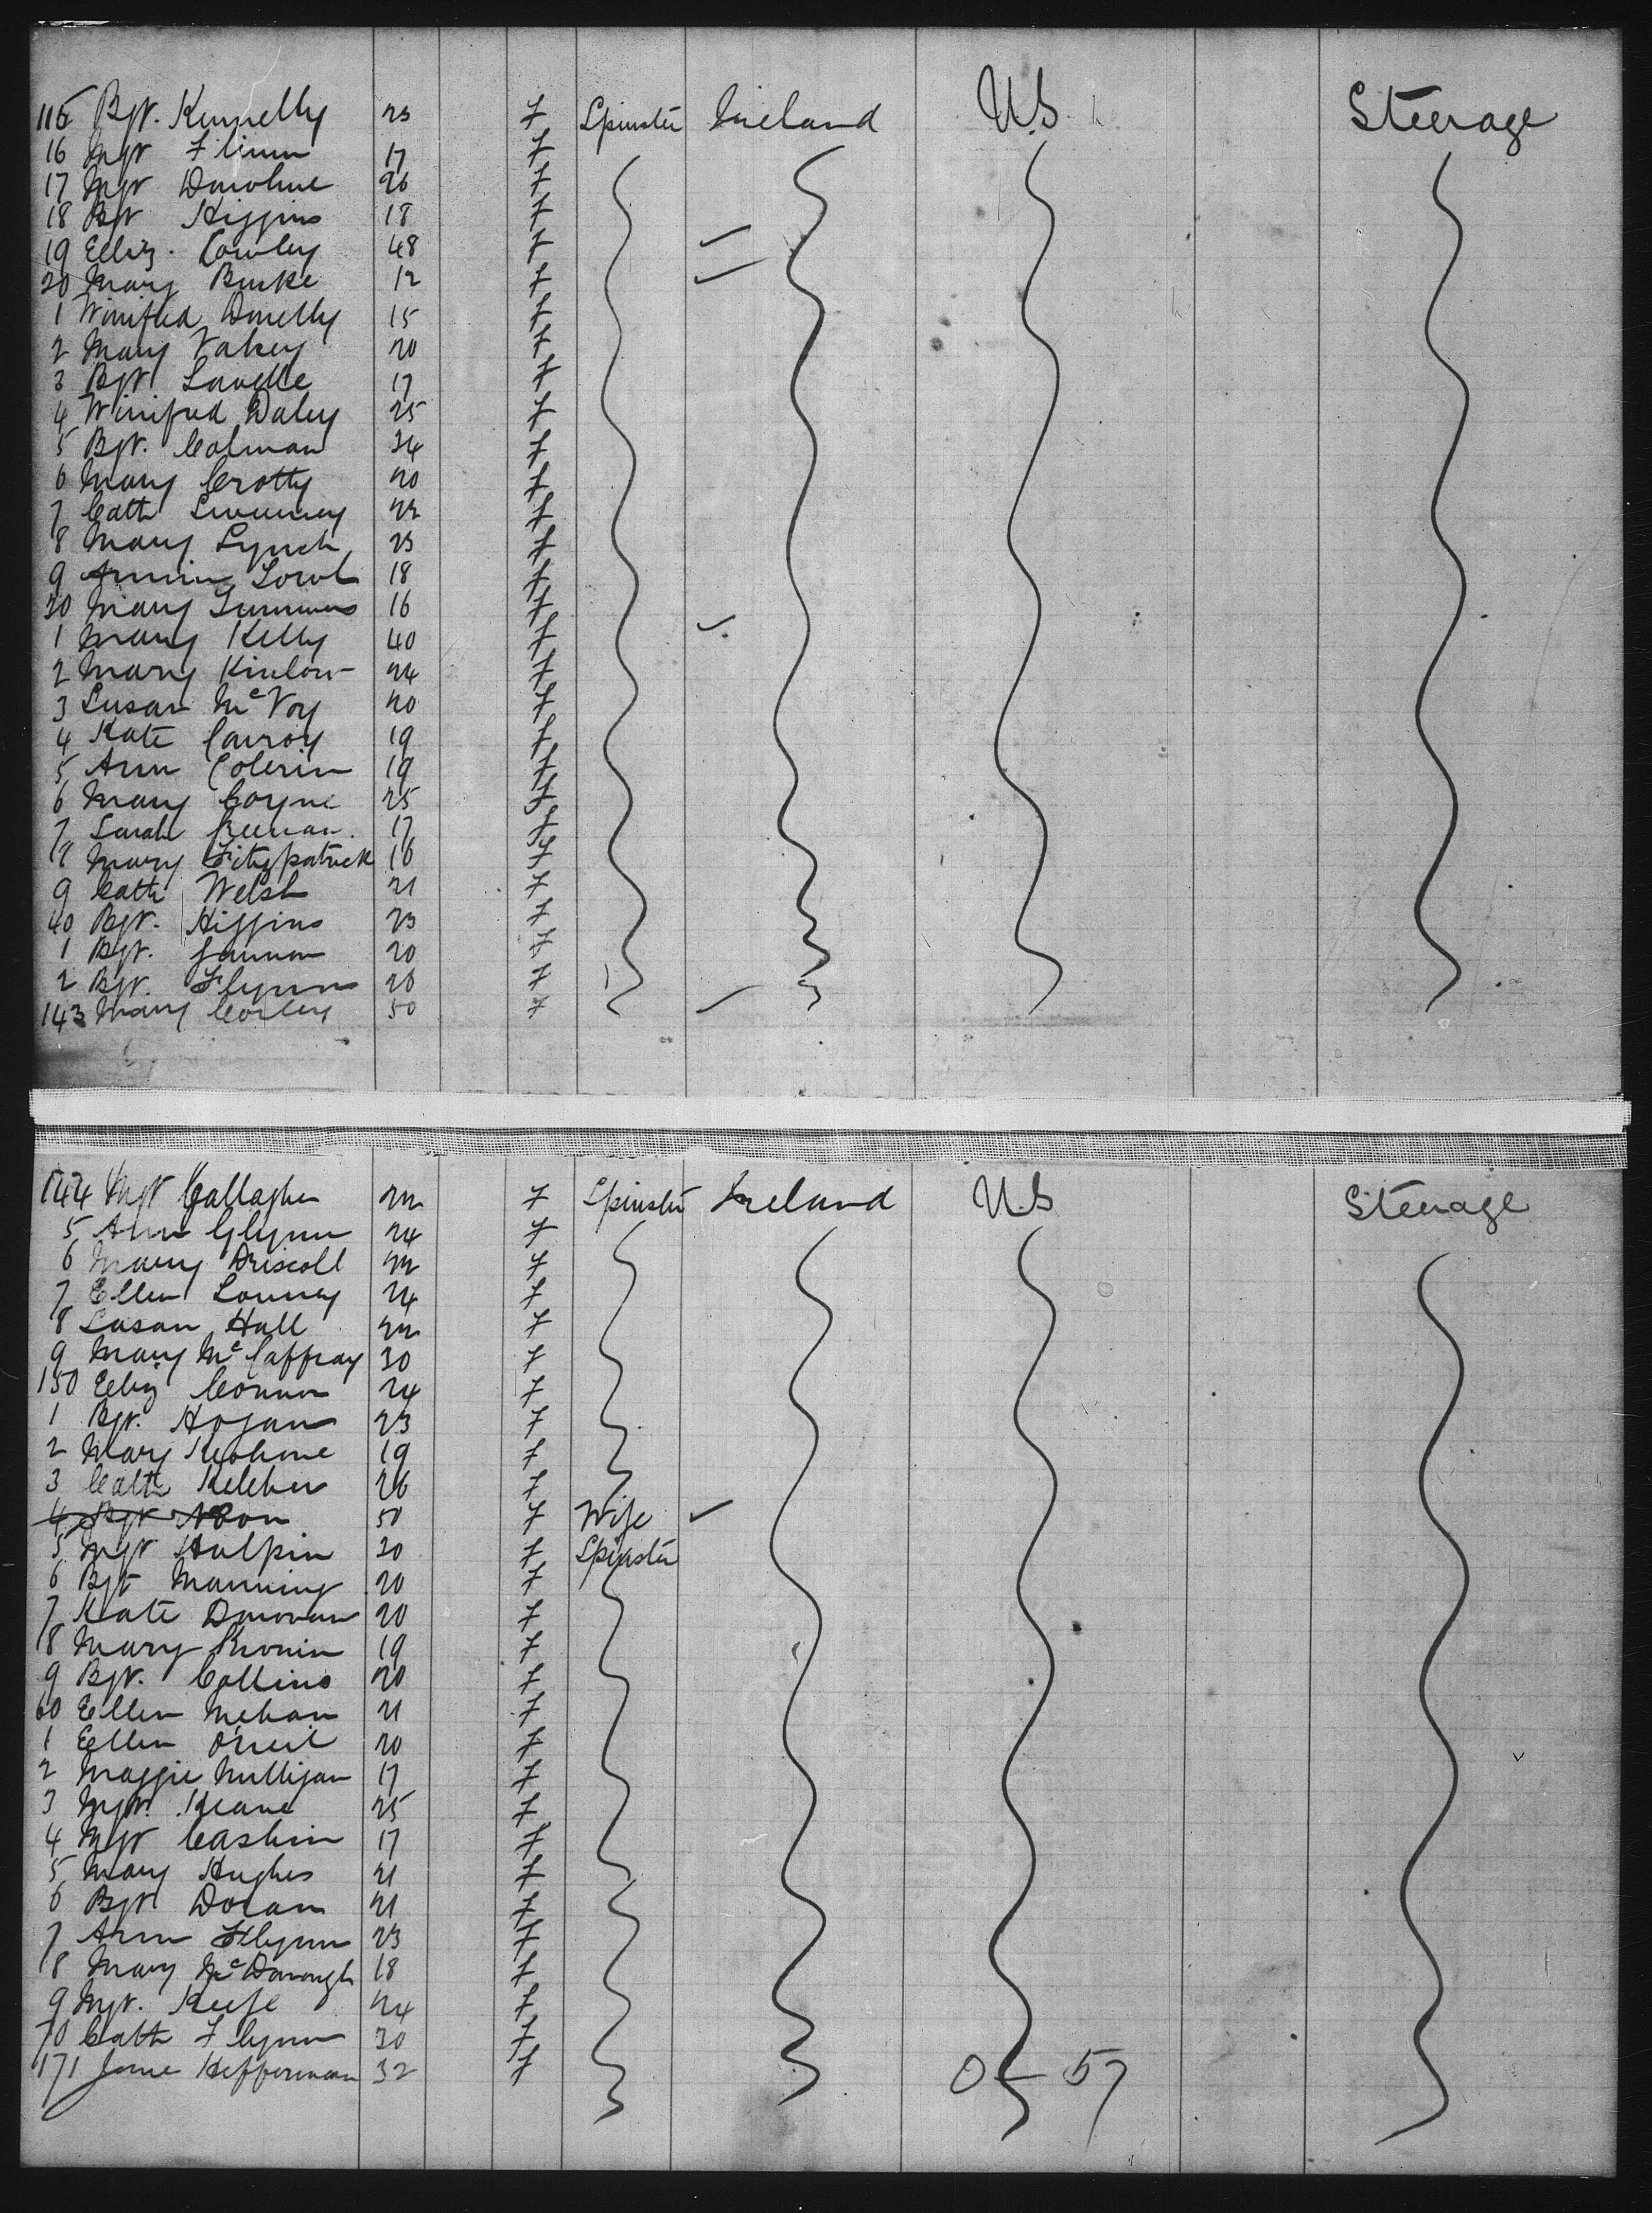 115 Bgt. Kennelly 23 F Spinster Ireland U.S. Steerage
16 Mgt Flinn 17 F
17 Mgt Donohue 26 F
18 Bgt Higgins 18 F
19 Eliz. Cowley 48 F
20 Mary Burke 12 F
1 Winifred Donelly 15 F
2 Mary Vahey 20 F
3 Bgt Lavelle 17 F
4 Winifred Daley 25 F
5 Bgt. Colman 34 F
6 Mary Crotty 20 F
7 Cath Sweeney 22 F
8 Mary Lynch 23 F
9 Annie 18 F
30 Mary Summers 16 F
1 Mary Kelly 40 F
2 Mary Kinlow 24 F
3 Susan McVoy 20 F
4 Kate Conroy 19 F
5 Ann Colerin 19 F
6 Mary Coyne 25 F
7 Sarah Keenan 17 F
8 Mary Fitzpatrick 16 F
9 Cath Welsh 21 F
40 Bgt. Higgins 23 F
1 Bgt. Gannon 20 F
2 Bgt. Flynn 20 F
143 Mary Corley 50 F
144 Mgt Gallagher 22 F Spinster Ireland U.S Steerage
5 Ann Glynn 24 F
6 Mary Driscoll 22 F
7 Ellen Looney 24 F
8 Susan Hall 22 F
9 Mary McCaffray 30 F
150 Eliz Connor 24 F
1 Bgt. Hogan 23 F
2 Mary Keohane 19 F
3 Cath Keleher 26 F
4 Bgt 50 F Wife
5 Mgt Halpin 30 F Spinster
6 Bgt Manning 20 F
7 Kate Donovan 20 F
8 Mary Kronin 19 F
9 Bgt. Collins 20 F
60 Ellen Mehan 21 F
1 Ellen O'neil 20 F
2 Maggie Mulligan 17 F
3 Mgt. Keane 25 F
4 Mgt Cashin 17 F
5 Mary Hughes 21 F
6 Bgt Doran 21 F
7 Ann Flynn 23 F
8 Mary McDonough 18 F
9 Mgt. Keefe 24 F
70 Cath Flynn 30 F
171 Jane Hefferman 32 F 0 - 57